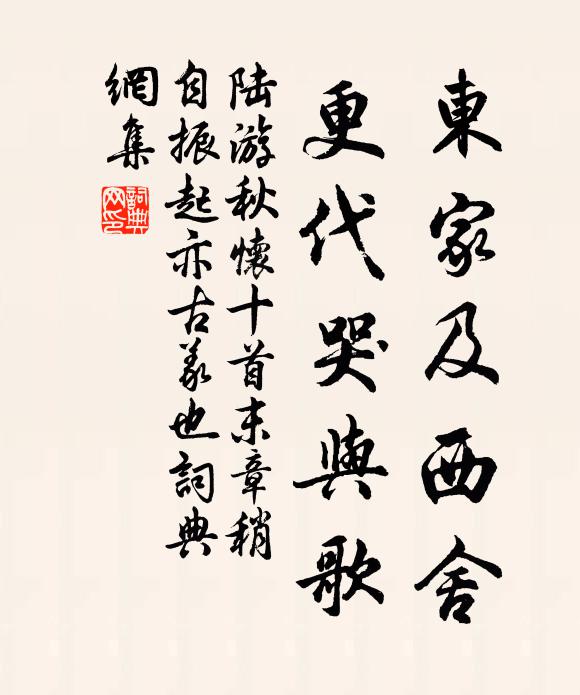 東家及西舍
更代哭與歌
陸游秋懷十首末章稍
自振起亦古義也詞典
網集
詞典
网印